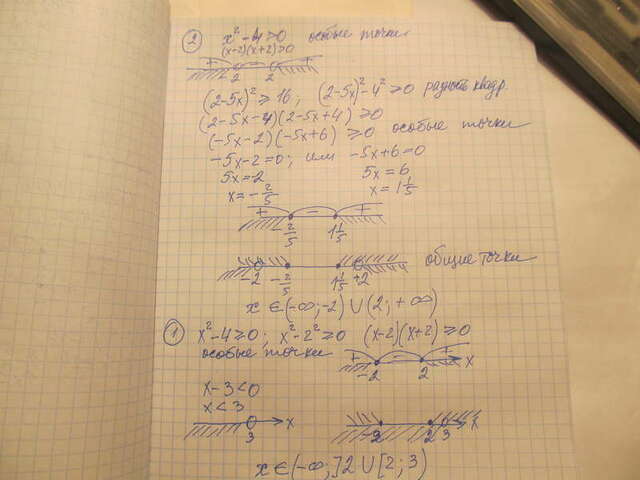 ② x² - 4 > 0 особые точки
(x-2)(x+2) > 0
+ - +
-2 2
(2-5x)² ≥ 16; (2-5x)² - 4² ≥ 0 разность квадр.
(2-5x-4)(2-5x+4) ≥ 0
(-5x-2)(-5x+6) ≥ 0 особые точки
-5x-2=0; или -5x+6=0
5x=-2 5x=6
x=-2/5 x=1 1/5
+ - +
-2/5 1 1/5
-2 -2/5 1 1/5 +2 общие точки
x ∈ (-∞; -2) ∪ (2; +∞)
① x² - 4 ≥ 0; x² - 2² ≥ 0 (x-2)(x+2) ≥ 0
особые точки + - +
-2 2 x
x - 3 < 0
x < 3
3 x -2 2 3 x
x ∈ (-∞; ]2 ∪ [2; 3)